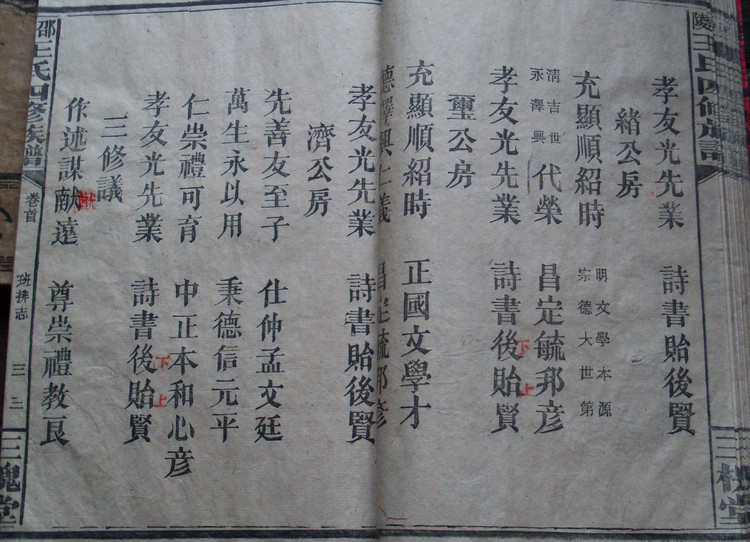 陵王氏四修族譜
三槐堂
孝友光先業 詩書貽後賢
緒公房
充顯順紹時 明文學本源 宗德大世第
清吉世 永澤興 代榮 昌定毓邦彦
孝友光先業 詩書後貽賢 下上
璽公房
充顯順紹時 正國文學才
德澤興仁義 昌定毓邦彦
孝友光先業 詩書貽後賢
濟公房
先善友至子 仕仲孟文廷
萬生永以用 秉德信元平
仁崇禮可育 中正本和心彦
孝友光先業 詩書後貽賢 下上
三修議
作述謀献遠 尊崇禮教良
邵王氏四修族譜 卷首 班排志 三 三槐堂